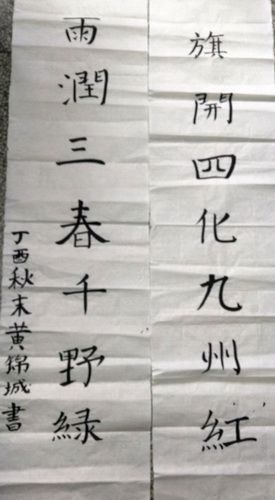 旗開四化九州紅
雨潤三春千野緑
丁酉秋末黄錦城書